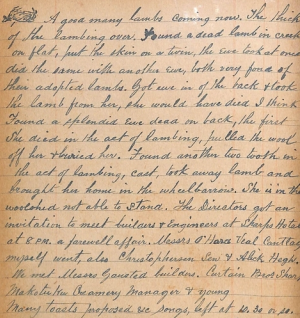 A good many lambs coming now. The thick
of the lambing over. Found a dead lamb in creek
on flat, put the skin on a twin, the ewe took at once
did the same with another ewe, both very fond of
their adopted lambs. Got ewe in of the back & took
the lamb from her, she would have died I think
Found a splendid ewe dead on back, the first
She died in the act of lambing, pulled the wool
off her & buried her. Found another two tooth in
the act of lambing, cast, took away lamb and
brought her home in the wheelbarrow. She is in the
woolshed not able to stand. The Directors got an
invitation to meet builders & Engineers at Sharps Hotel
at 8 P.M. a farewell affair. Messrs O'Hara Teal
myself went, also Christophersen Sen & Aleck Hogh.
We met Messrs builders,
Creamery Manager & young
Many toasts proposed &c songs, left at 12.30